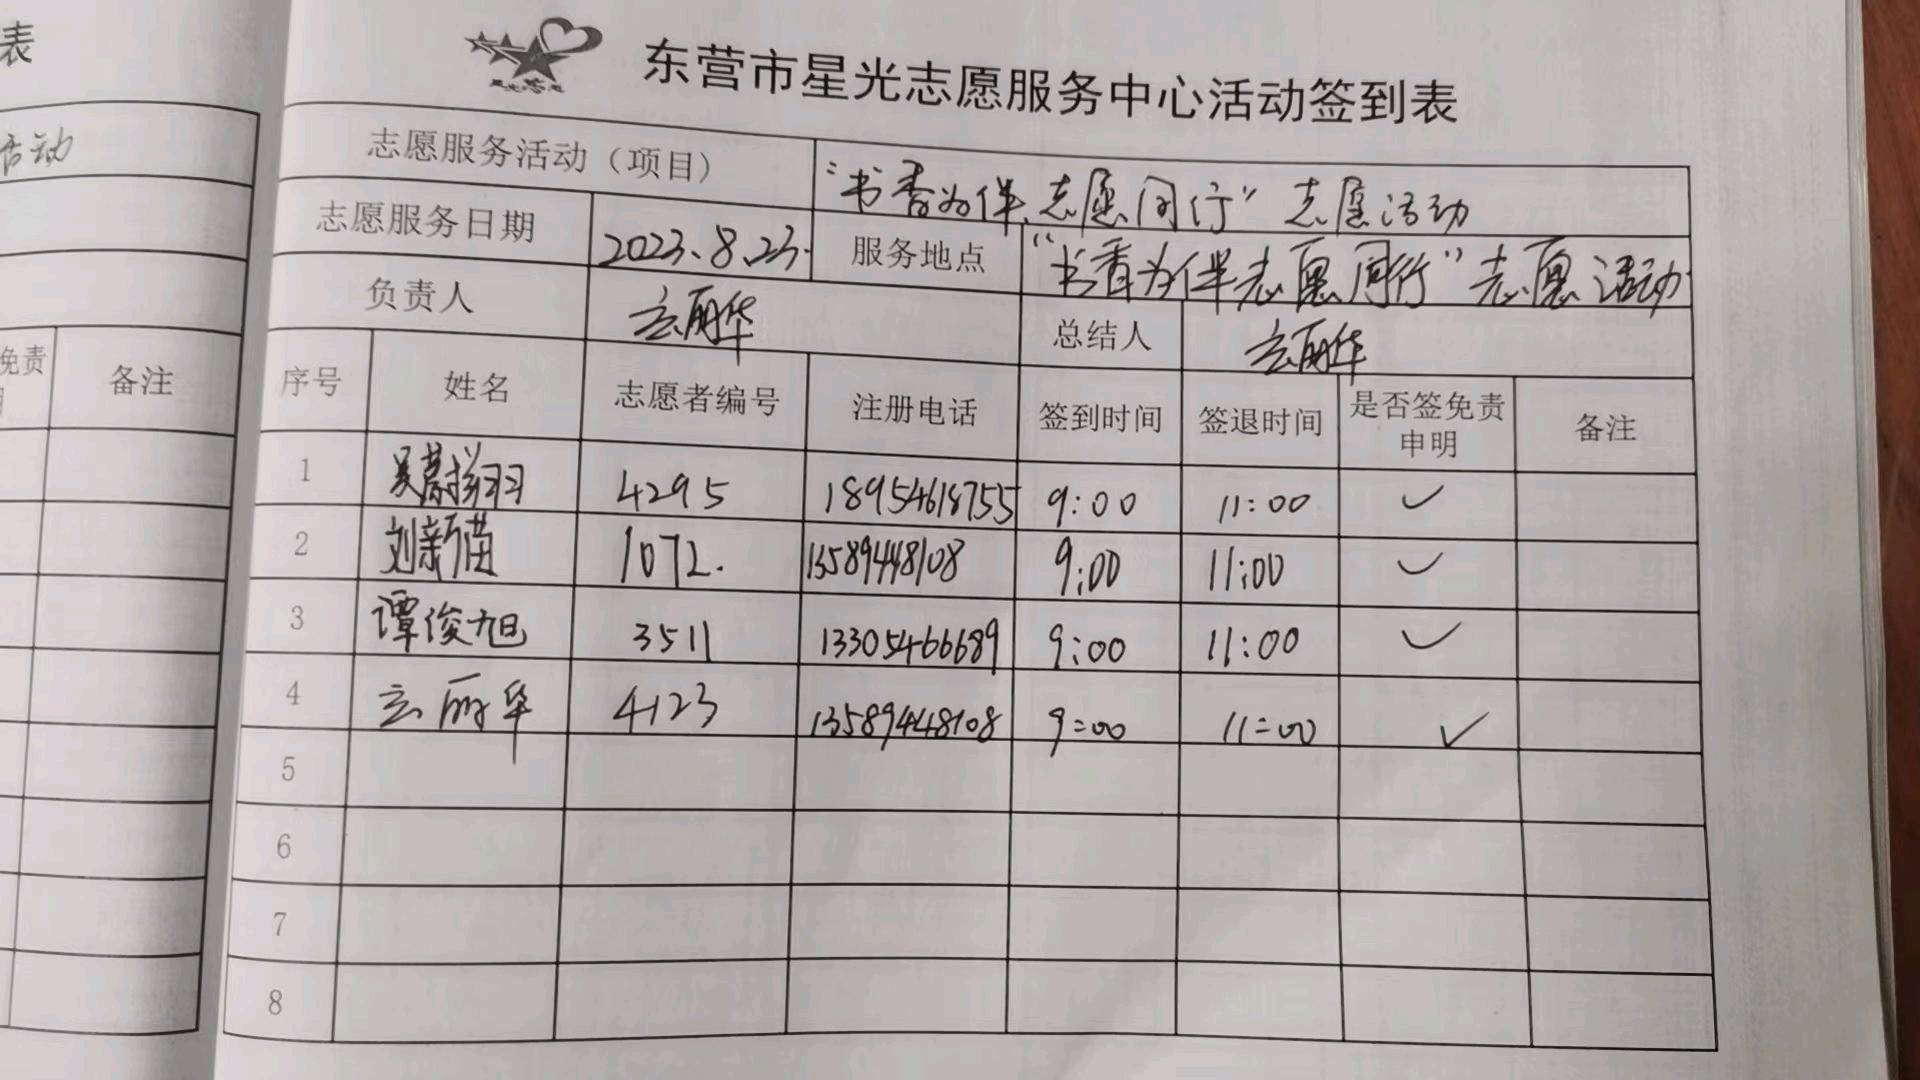 表
活动
免责
备注
东营市星光志愿服务中心活动签到表
志愿服务活动（项目） “书香为伴,志愿同行”志愿活动
志愿服务日期 2023.8.23. 服务地点 “书香为伴志愿同行”志愿活动
负责人 玄丽华 总结人 玄丽华
序号 姓名 志愿者编号 注册电话 签到时间 签退时间 是否签免责申明 备注
1 4295 18954618755 9:00 11:00 ✓
2 1072. 13589448108 9:00 11:00 ✓
3 谭俊旭 3511 13305466689 9:00 11:00 ✓
4 玄丽华 4123 13589448108 9:00 11:00 ✓
5
6
7
8